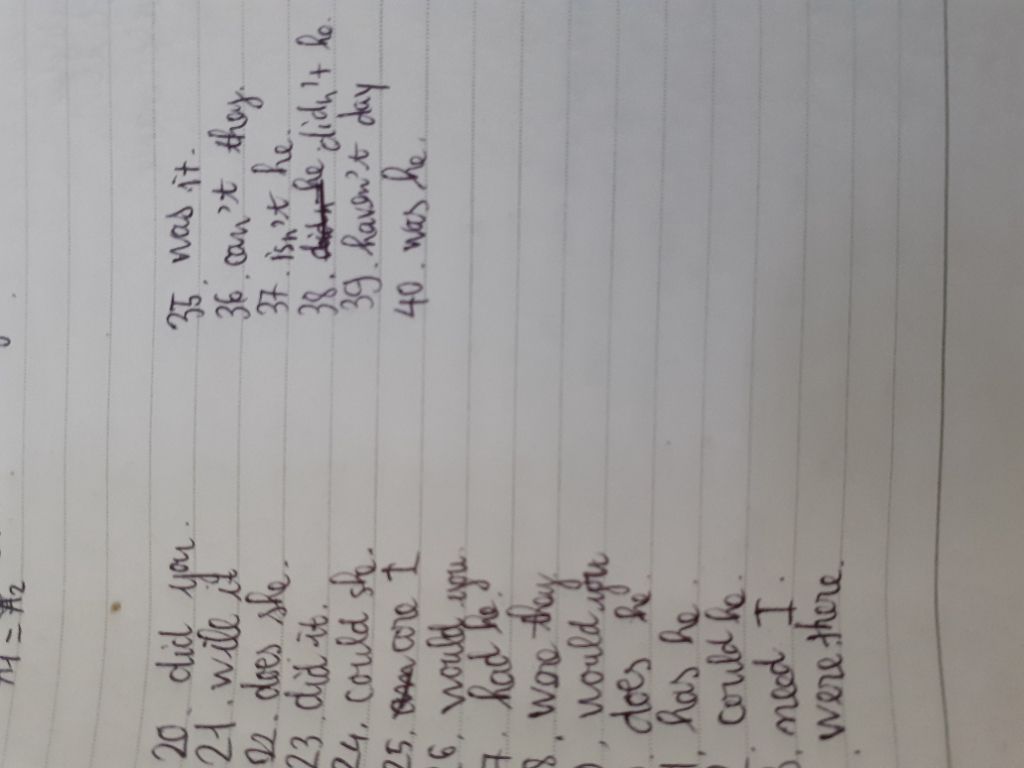 20. did you.
21. will it
22. does she.
23. did it.
24. could she.
25. are I
6. would you
7. had he.
8. were they
would you
does he.
has he.
could he.
need I.
were there.
35. was it.
36. can't they.
37. isn't he.
38. didn't he.
39. haven't day
40. was he.